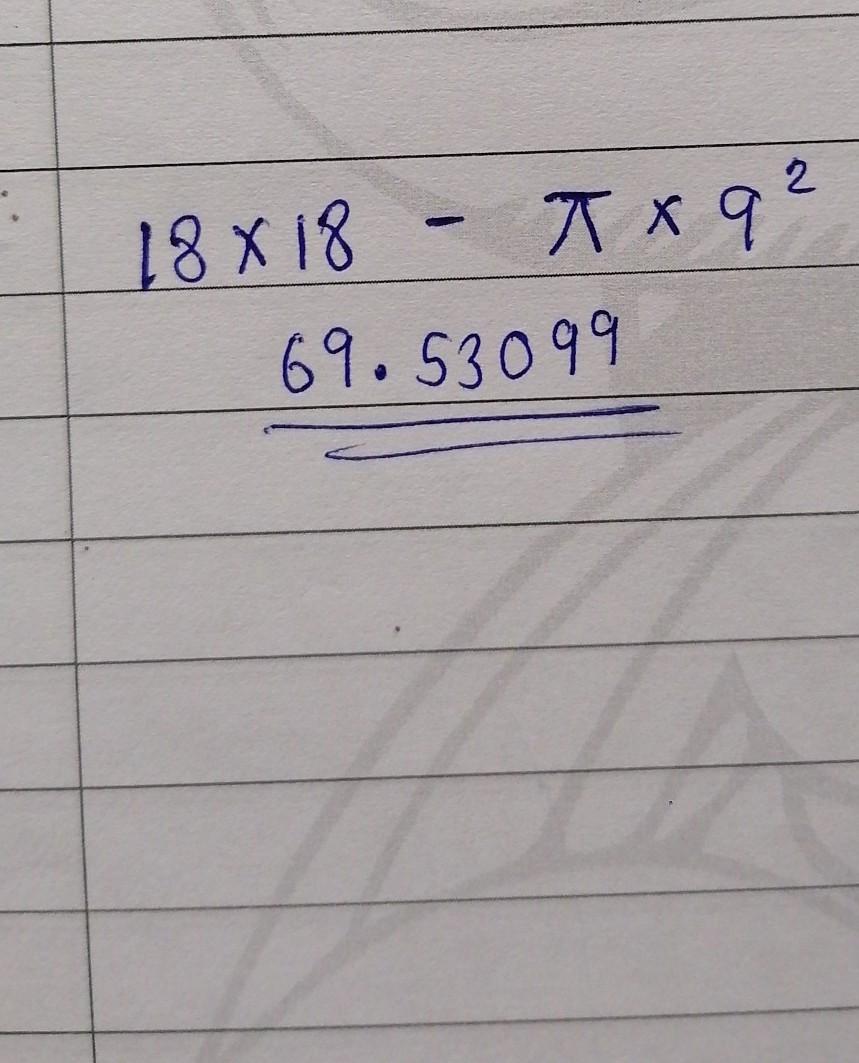 18 x 18 - π x 9²
69.53099